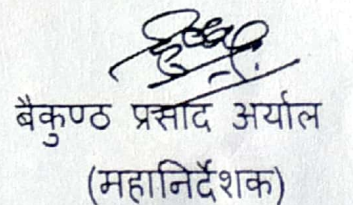 बैकुण्ठ प्रसाद अर्याल
(महानिर्देशक)